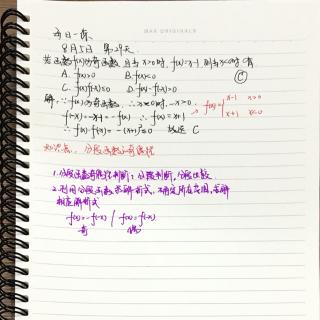 MAX ORIGINALS
每日一练
8月5日 第29天
若函数f(x)为奇函数,且当x>0时,f(x)=x-1,则当x<0时,有
A. f(x)>0 B. f(x)<0 (C)
C. f(x)f(-x)≤0 D. f(x)-f(-x)>0
解:∵f(x)为奇函数,∴x<0时,-x>0.
f(-x)=-x-1=-f(x) ∴f(x)=x+1
f(x)={x-1 x>0
x+1 x<0
∴f(x)·f(-x)=-(x+1)²≤0 故选C
知识点:分段函数奇偶性
1.分段函数奇偶性判断:分段判断,分段比较
2.利用分段函数求解析式,先确定所在范围,求解
相应解析式
f(x)=-f(-x) / f(x)=f(-x)
奇 偶